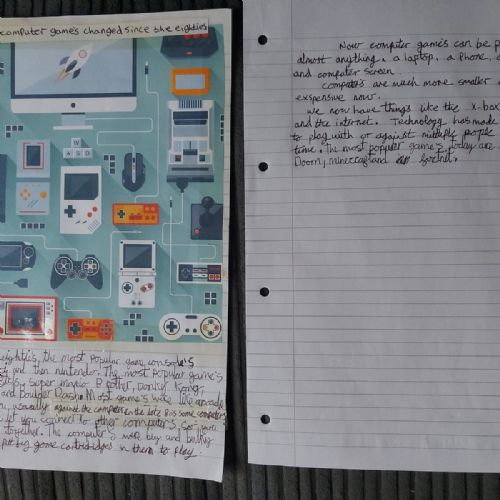 computer game's changed since the eighties
W
A S D
eightie's, the most popular game console's
and then nintendo. The most popular game's
super mario Brother, Donky Kong,
and Boulder Dash. Most game's were like arcade
usually against the computer in the late 80s some computers
let you connect to other computer's for
together. The computer's were big and bulky
put big game cartridges in them to play.
Now computer game's can be p
almost anything, a laptop, a Phone,
and computer screen.
Computers are much more smaller
exspensive now.
We now have things like the X-box
and the internet. Technology has made
to play with or against multiple people
time. The most popular game's today are
Doom, minecraft and fortnite.